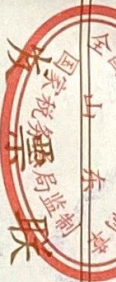 全
山东
国家税务局监制
发票联